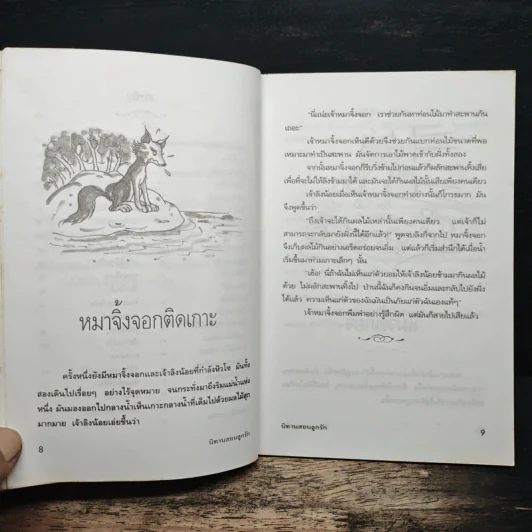 หมาจิ้งจอกติดเกาะ
ครั้งหนึ่งยังมีหมาจิ้งจอกและเจ้าลิงน้อยที่กำลังหิวโซ มันทั้ง
สองเดินไปเรื่อยๆ อย่างไร้จุดหมาย จนกระทั่งมาถึงริมแม่น้ำแห่ง
หนึ่ง มันมองออกไปกลางน้ำเห็นเกาะกลางน้ำที่เต็มไปด้วยผลไม้สุก
มากมาย เจ้าลิงน้อยเอ่ยขึ้นว่า
8
นิทานสอนลูกรัก
"นี่แน่ะเจ้าหมาจิ้งจอก เราช่วยกันหาท่อนไม้มาทำสะพานกัน
เถอะ"
เจ้าหมาจิ้งจอกเห็นดีด้วยจึงช่วยกันแบกท่อนไม้ขนาดที่พอ
เหมาะมาทำเป็นสะพาน มันจัดการเอาไม้พาดเข้ากับฝั่งทั้งสอง
จากนั้นหมาจิ้งจอกก็รีบวิ่งข้ามไปก่อนแล้วก็ผลักสะพานทิ้งเสีย
เพื่อที่จะไม่ให้ลิงข้ามมาได้ และมันจะได้กินผลไม้นั้นเสียเพียงตัวเดียว
เจ้าลิงน้อยเมื่อเห็นเจ้าหมาจิ้งจอกทำอย่างนั้นก็โกรธมาก มัน
จึงพูดขึ้นว่า
"ถึงเจ้าจะได้กินผลไม้เหล่านั้นเพียงคนเดียว แต่เจ้าก็ไม่
สามารถจะกลับมายังฝั่งนี้ได้อีกแล้ว!" พูดจบลิงก็จากไป หมาจิ้งจอก
จึงเก็บผลไม้กินอย่างเอร็ดอร่อยจนอิ่ม แต่แล้วก็เริ่มสำนึกได้เมื่อน้ำ
เริ่มขึ้นมาท่วมเกาะเล็กๆ นั้น
"เฮ้อ! นี่ถ้าฉันไม่เห็นแก่ตัวยอมให้เจ้าลิงน้อยข้ามมากินผลไม้
ด้วย ไม่ผลักสะพานทิ้งไป ป่านนี้ฉันก็คงกินจนอิ่มและกลับไปยังฝั่ง
ได้แล้ว ความเห็นแก่ตัวของฉันมันเป็นภัยแก่ตัวฉันเองแท้ๆ"
เจ้าหมาจิ้งจอกพึมพำอย่างรู้สึกผิด แต่มันก็สายไปเสียแล้ว
นิทานสอนลูกรัก
9